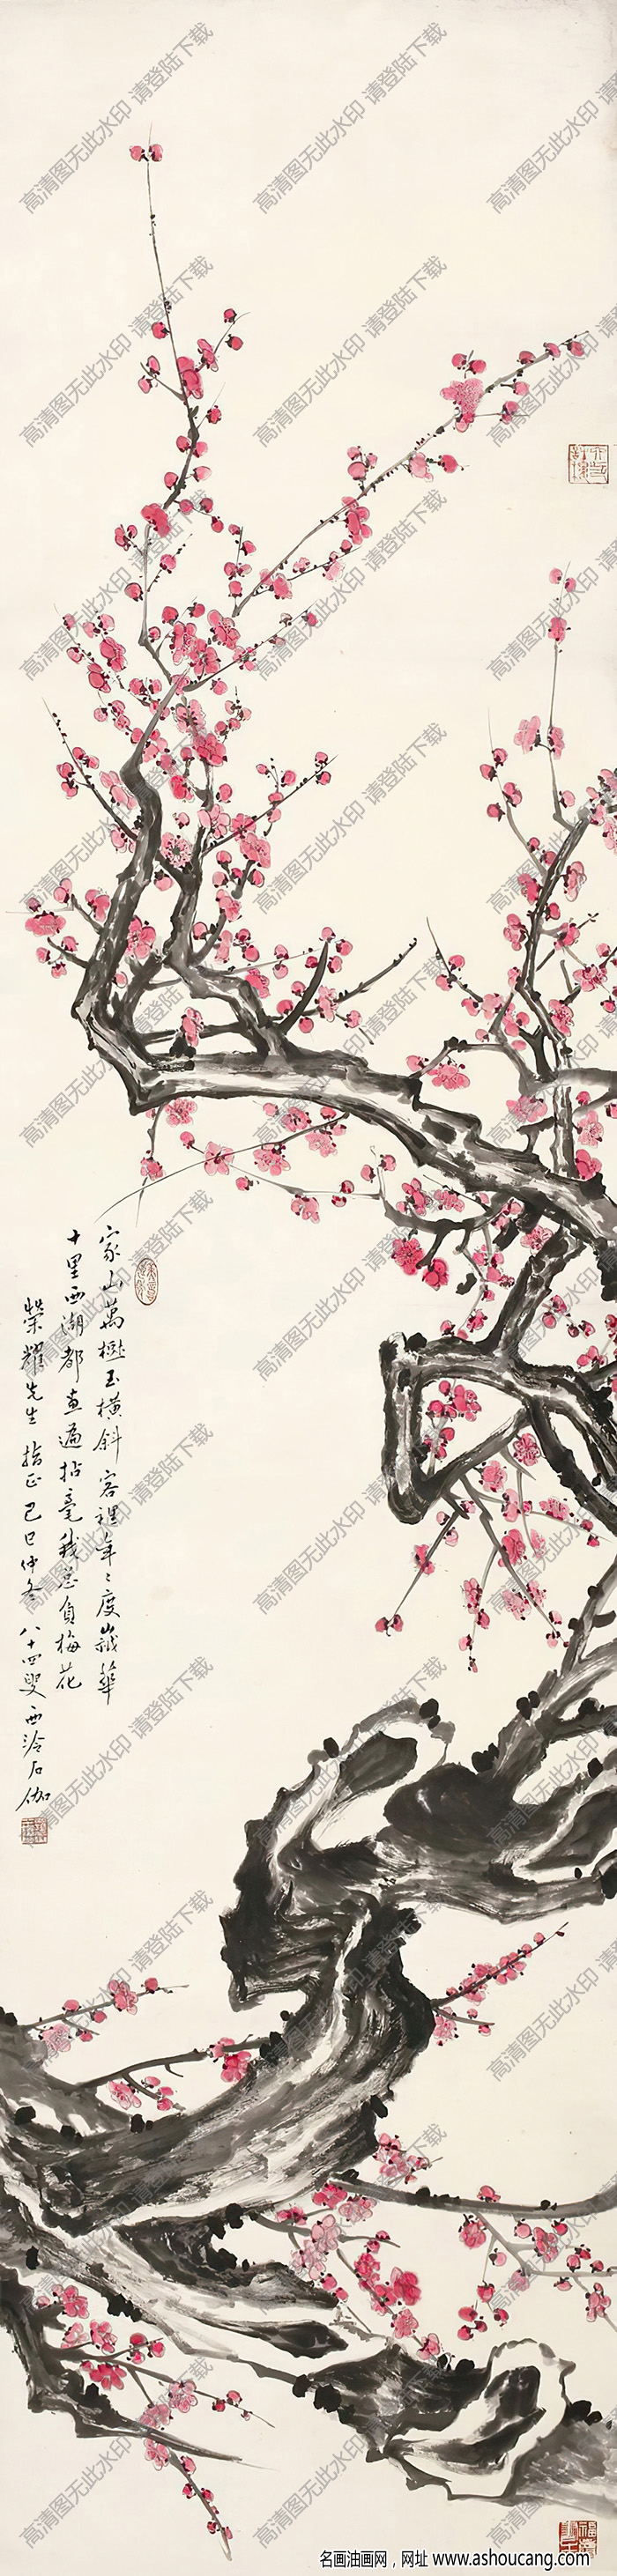 家山萬樹玉橫斜客裡年〻度歲華
十里西湖都畫遍拈毫我總負梅花
榮耀先生指正己巳仲冬八十四叟西泠石伽
高清图无此水印 请登陆下载
名画油画网，网址 www.ashoucang.com